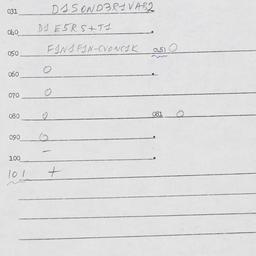 031 D15OND3R1VAR2
040 D1 E5RS+T1
050 F1N1F1N-CVONC1K 051 O
060 O
070 O
080 O 081 O
090 O
100 -
101 +